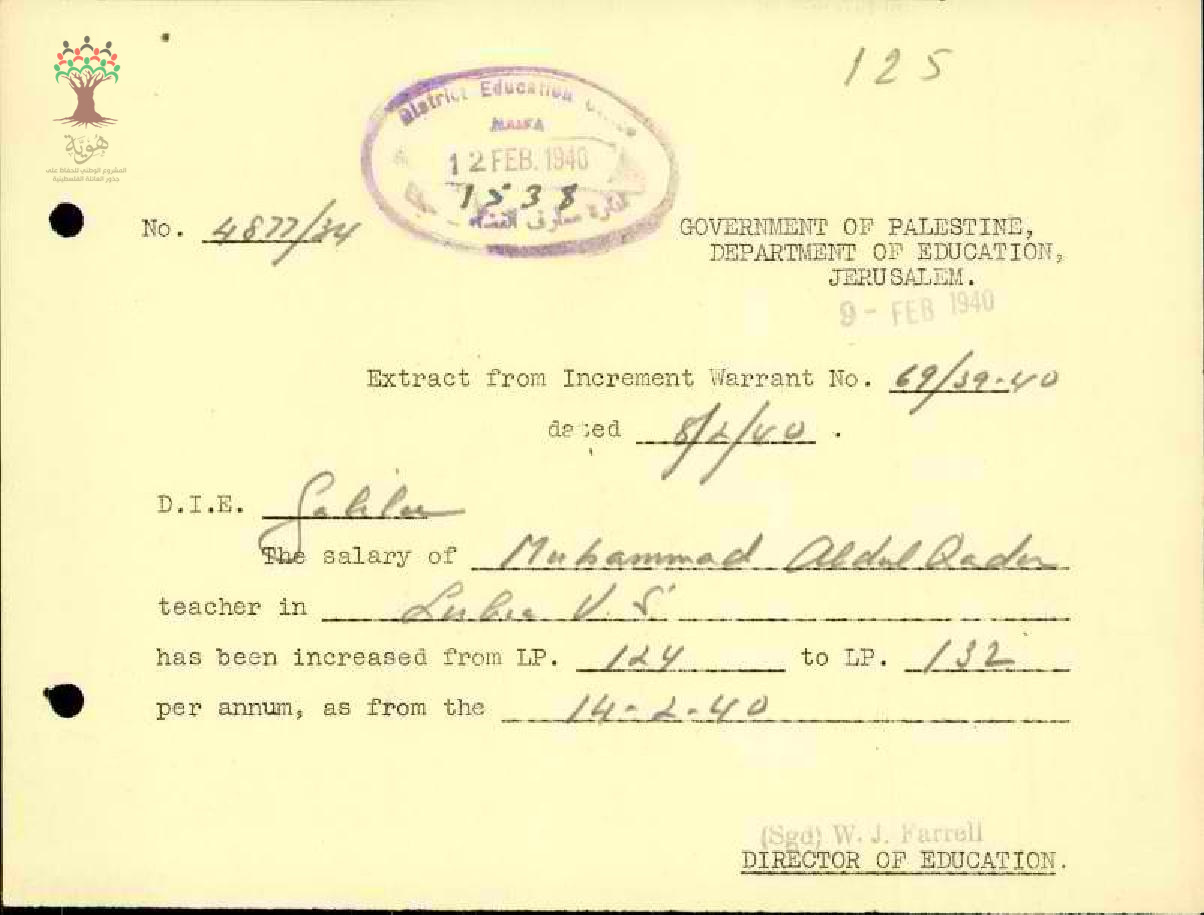 125
هُوِيَّة
المشروع الوطني للحفاظ على
جذور العائلة الفلسطينية
District Education Office
HAIFA
12 FEB. 1940
1538
No. 4877/34
GOVERNMENT OF PALESTINE,
DEPARTMENT OF EDUCATION,
JERUSALEM.
9 - FEB 1940
Extract from Increment Warrant No. 69/39-40
dated 8/2/40 .
D.I.E. Galilee
The salary of Muhammad Abdul Qader
teacher in Lubia V. S.
has been increased from LP. 124 to LP. 132
per annum, as from the 14-2-40
(Sgd) W. J. Farrell
DIRECTOR OF EDUCATION.